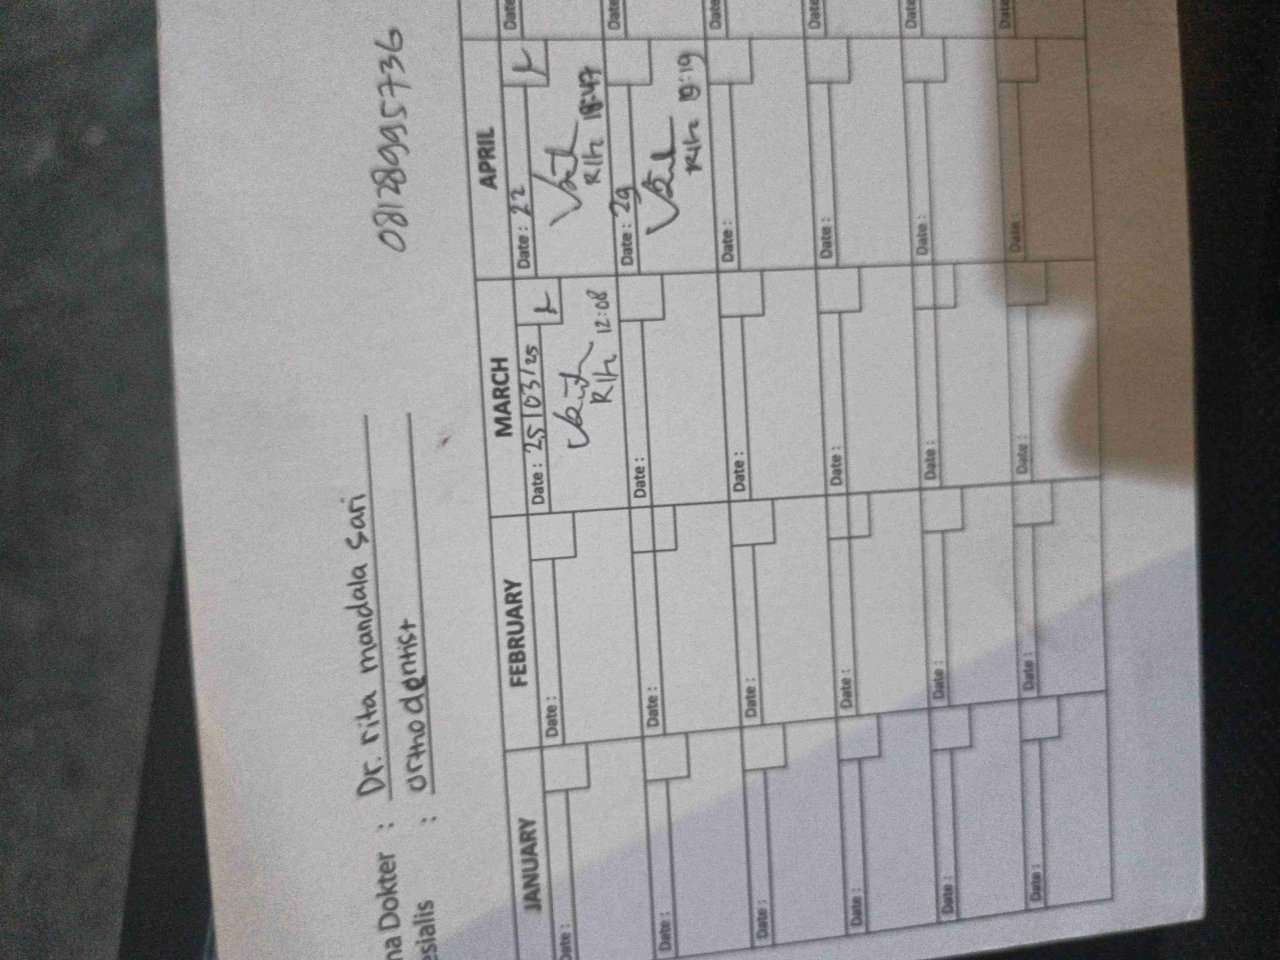 na Dokter : Dr. rita mandala sari
esialis : orthodentist
081289995736
JANUARY FEBRUARY MARCH APRIL
Date : Date : Date : 25/03/25 Date : 22 Date
R1h 12:08 R1h 18:47
Date : Date : Date : Date : 29 Date
R1h 19:19
Date : Date : Date : Date : Date
Date : Date : Date : Date : Date
Date : Date : Date : Date : Date
Date : Date : Date : Date Date